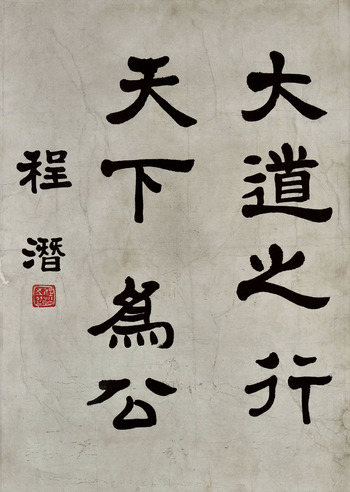 大道之行
天下為公
程潛